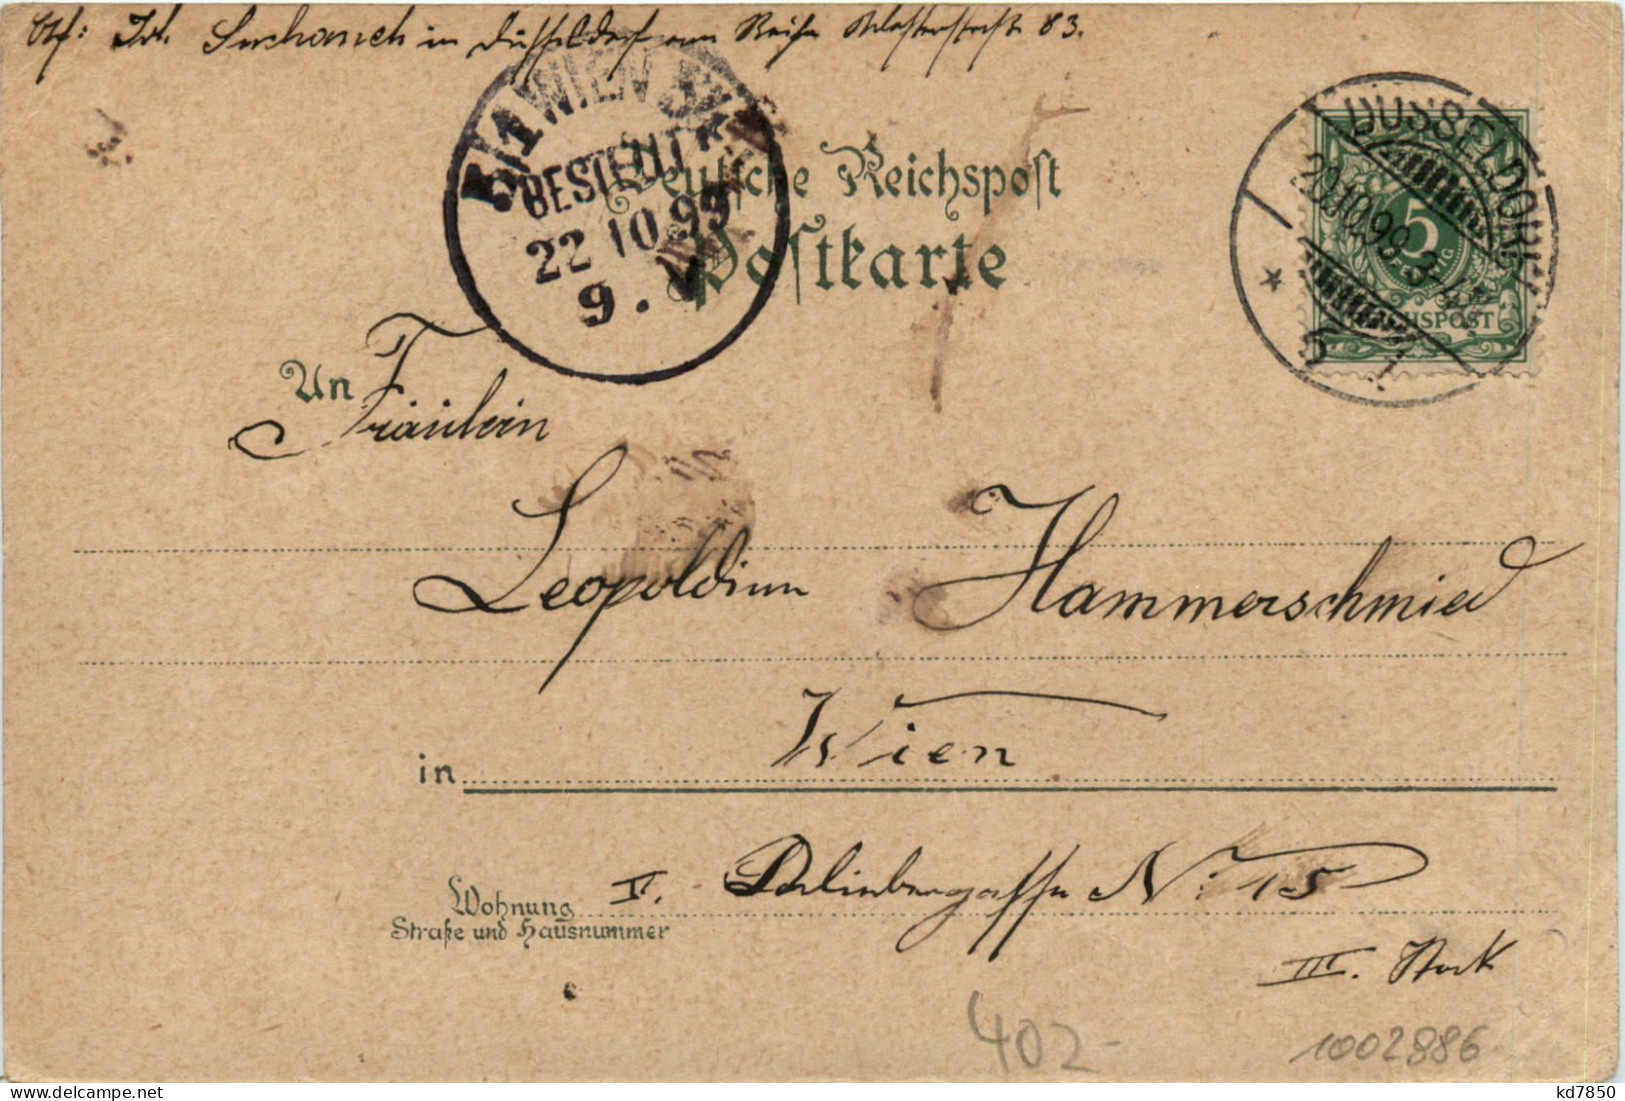 in Düsseldorf am Rhein Klosterstraße 83.
5/1 WIEN
BESTELLT
22 10.99
9. V
Deutsche Reichspost
Postkarte
DÜSSELDORF
20.10.99. 3-4N.
* 5 1
5
REICHSPOST
An Fräulein
Leopoldine Hammerschmied
in Wien
Wohnung
Straße und Hausnummer
V. N: 15
III. Stock
402-
1002886
kd7850